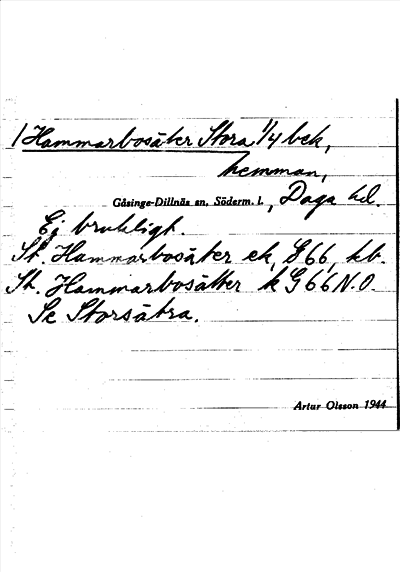 / Hammarbosäter Stora 1/4 bek,
hemman,
Gåsinge-Dillnäs sn, Söderm. l., Daga hd.
Ej brukligt.
St. Hammarbosäter ek, G66, kb.
St. Hammarbosätter k G66 N.O.
Se Storsätra.
Artur Olsson 1944